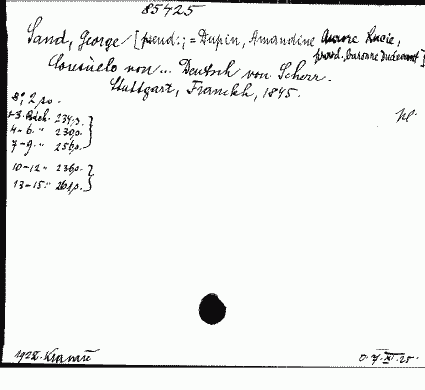 85425
Sand, George [pseud.; = Dupin, Amandine Aurore Lucie,
baronne Dudevant]
Consuelo von ... Deutsch von Scherr.
Stuttgart, Franckh, 1845.
8°, 2 po.
1-3. Büch. 234p.
4-6. " 230p.
7-9. " 256p.
10-12. " 236p.
13-15. " 261p.